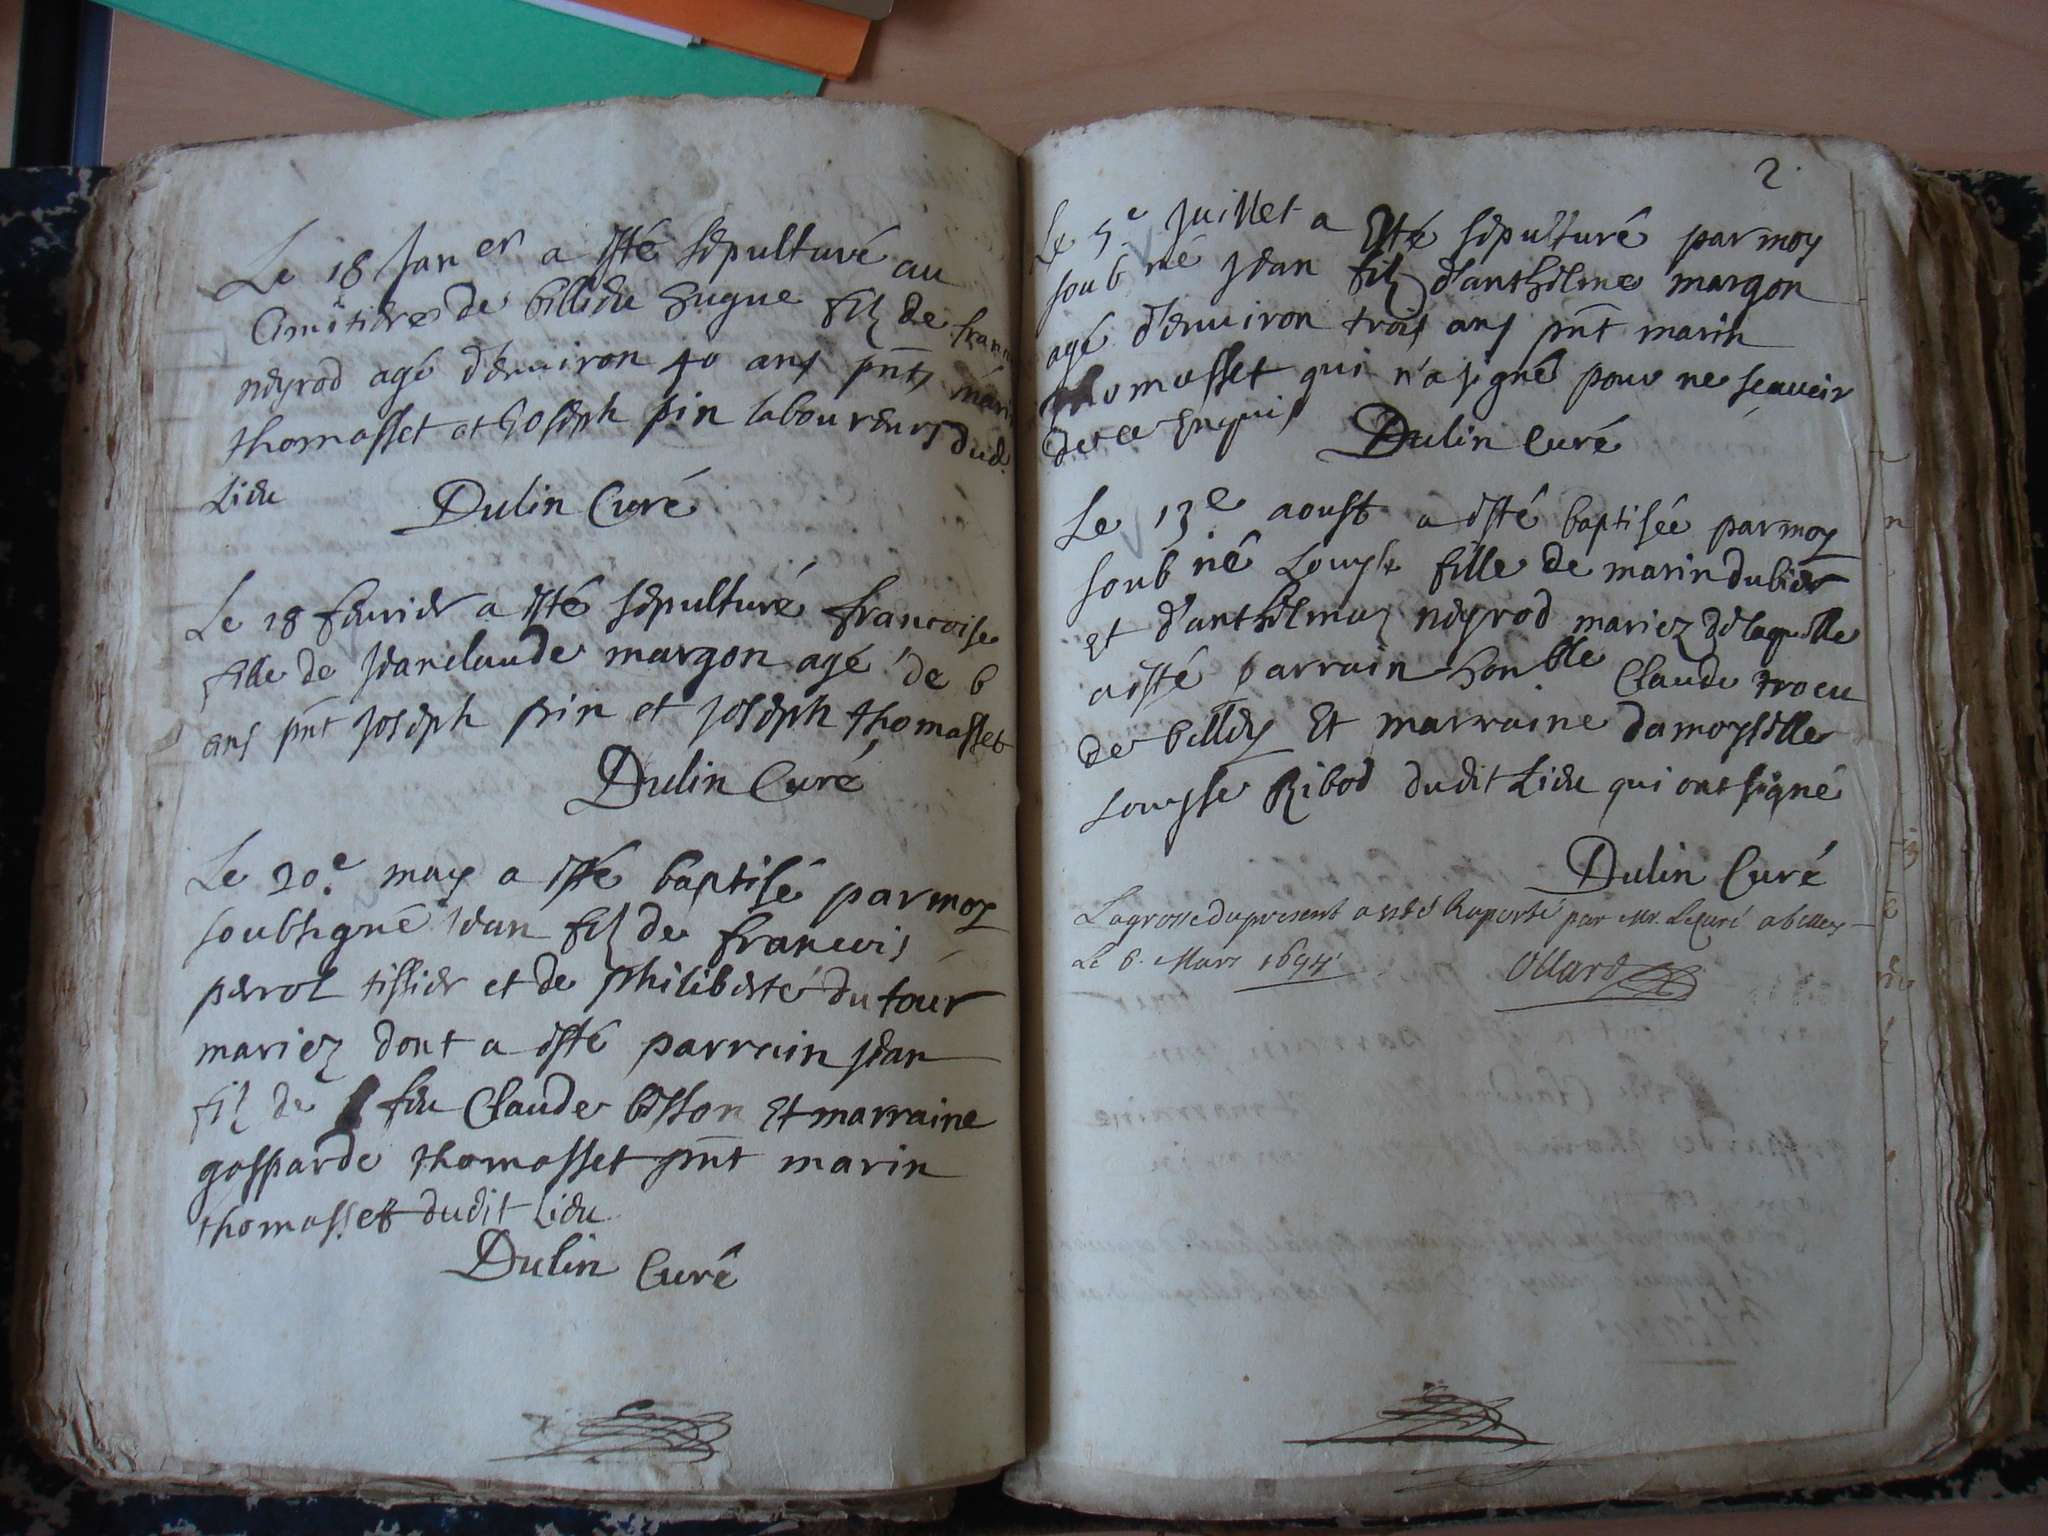 Le 18 Janer a esté sepulturé au
Cimitiere de billieu hugue filz de
neyrod agé d'enuiron 40 ans pnts
thomasset et Joseph pin laboureurs dud.
Lieu
Dulin Curé
Le 18 feurier a esté sepulturé francoise
fille de Jeanclaude margon agé de 6
ans pnt Joseph pin et Joseph thomasset
Dulin Curé
Le 20e may a esté baptisé par moy
soubsigné Jean filz de francois
perrot tissier et de philiberte du tour
mariez dont a esté parrain Jean
filz de feu Claude bisson Et marraine
gasparde thomasset pnt marin
thomasset dudit Lieu
Dulin Curé
2.
Le 5e Juillet a Esté sepulturé par moy
soubné Jean filz d'anthelme margon
agé d'enuiron trois ans pnt marin
thomasset qui n'a signé pour ne scauoir
de ce Enquis
Dulin Curé
Le 13e aoust a esté baptisée par moy
soubné Louyse fille de marin dubier
et d'anthelmaz neyrod mariez de laquelle
a esté parrain honble Claude trocu
de belley Et marraine damoyselle
Louyse Ribod dudit Lieu qui ont signé
Dulin Curé
La grosse du present a esté Raporté par Mr. Le Curé a belley
Le 6. Mars 1694
Ollard